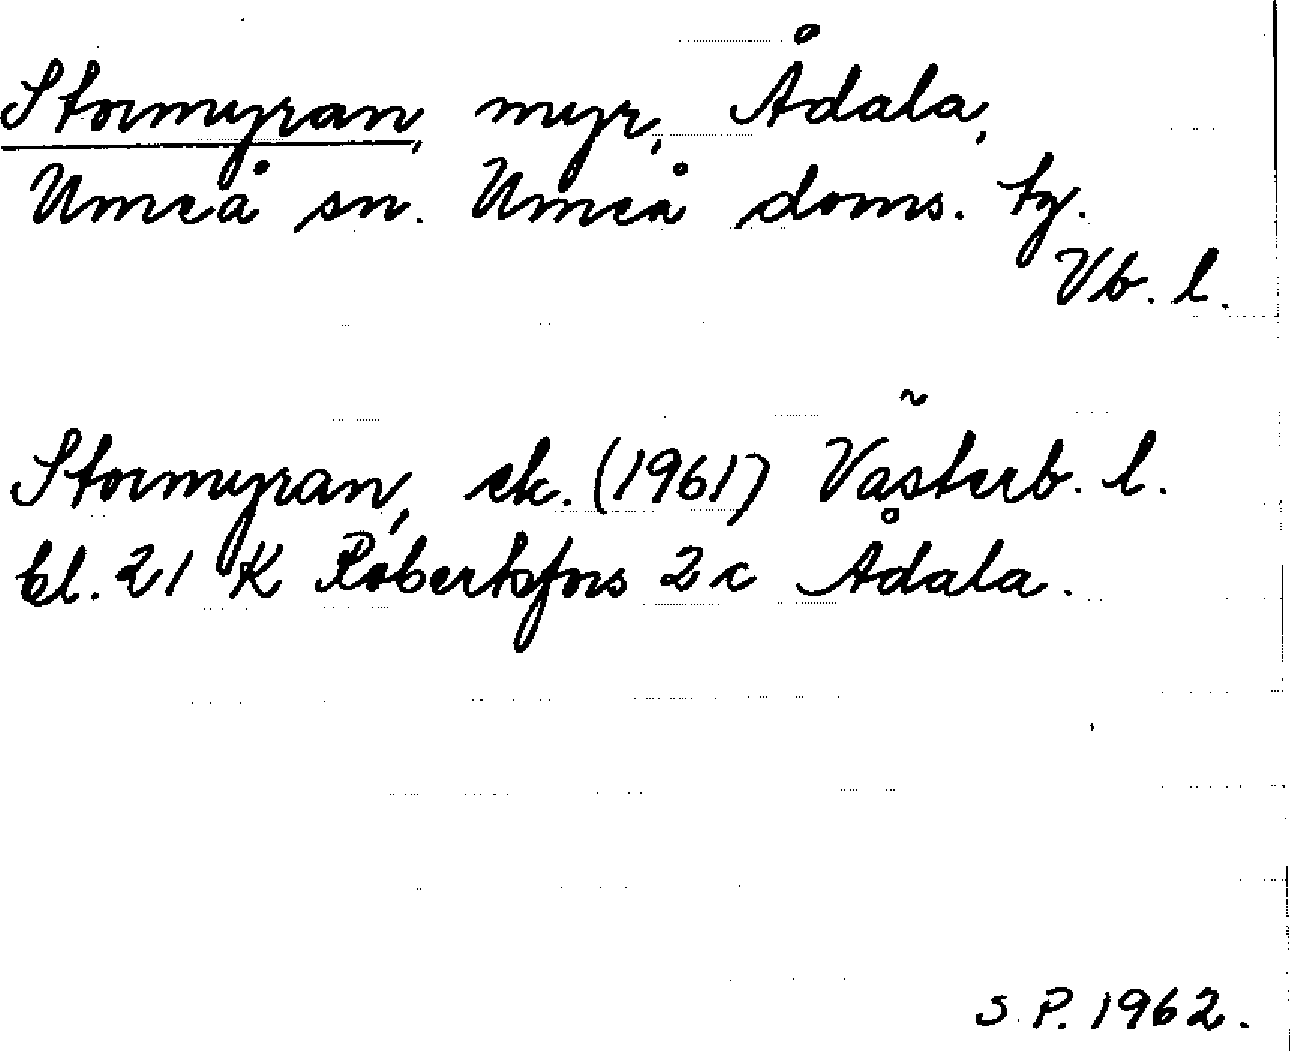 Stormyran, myr, Ådala,
Umeå sn. Umeå doms. tg.
Vb. l.
Stormyran, ek. (1961) Västerb. l.
bl. 21 K Robertsfors 2 c Ådala.
S.P. 1962.